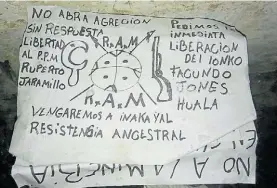 NO ABRA AGRECION
SIN RESPUESTA
LIBERTAD
AL P.P.M
RUPERTO
JARAMILLO
R.A.M
R.A.M
PEDIMOS
INMEDIATA
LIBERACION
DEL LONKO
FACUNDO
JONES
HUALA
VENGAREMOS A INAKAYAL
RESISTENCIA ANCESTRAL
NO A LA MINERIA